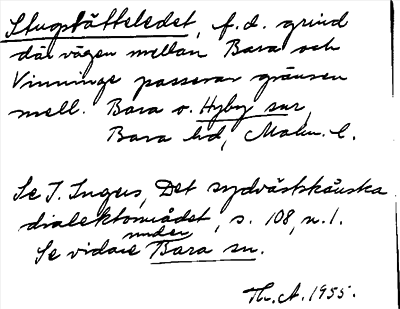 Stugstätteledet, f.d. grind
där vägen mellan Bara och
Vinninge passerar gränsen
mell. Bara o. Hyby snr,
Bara hd, Malm. l.
Se I. Ingers, Det sydvästskånska
dialektområdet, s. 108, n. 1.
Se vidare under Bara sn.
Th. A. 1955.